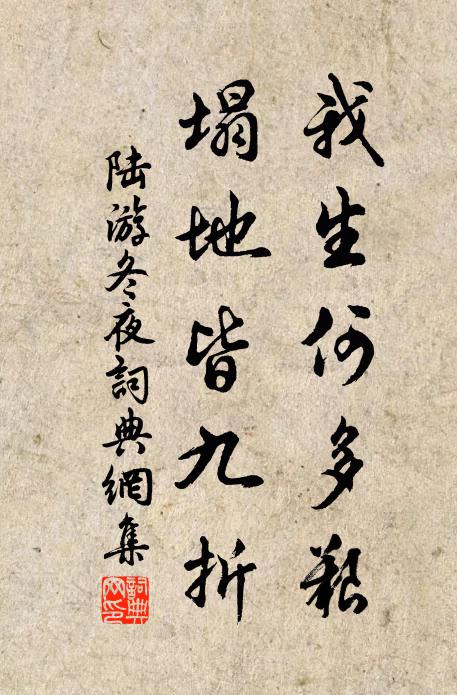 我生何多艱
塌地皆九折
陆游冬夜詞典網集
詞典网印